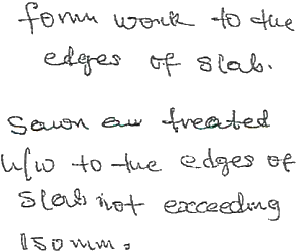 form work to the
edges of slab.
Sawn treated
h/w to the edges of
slab not exceeding
150mm.